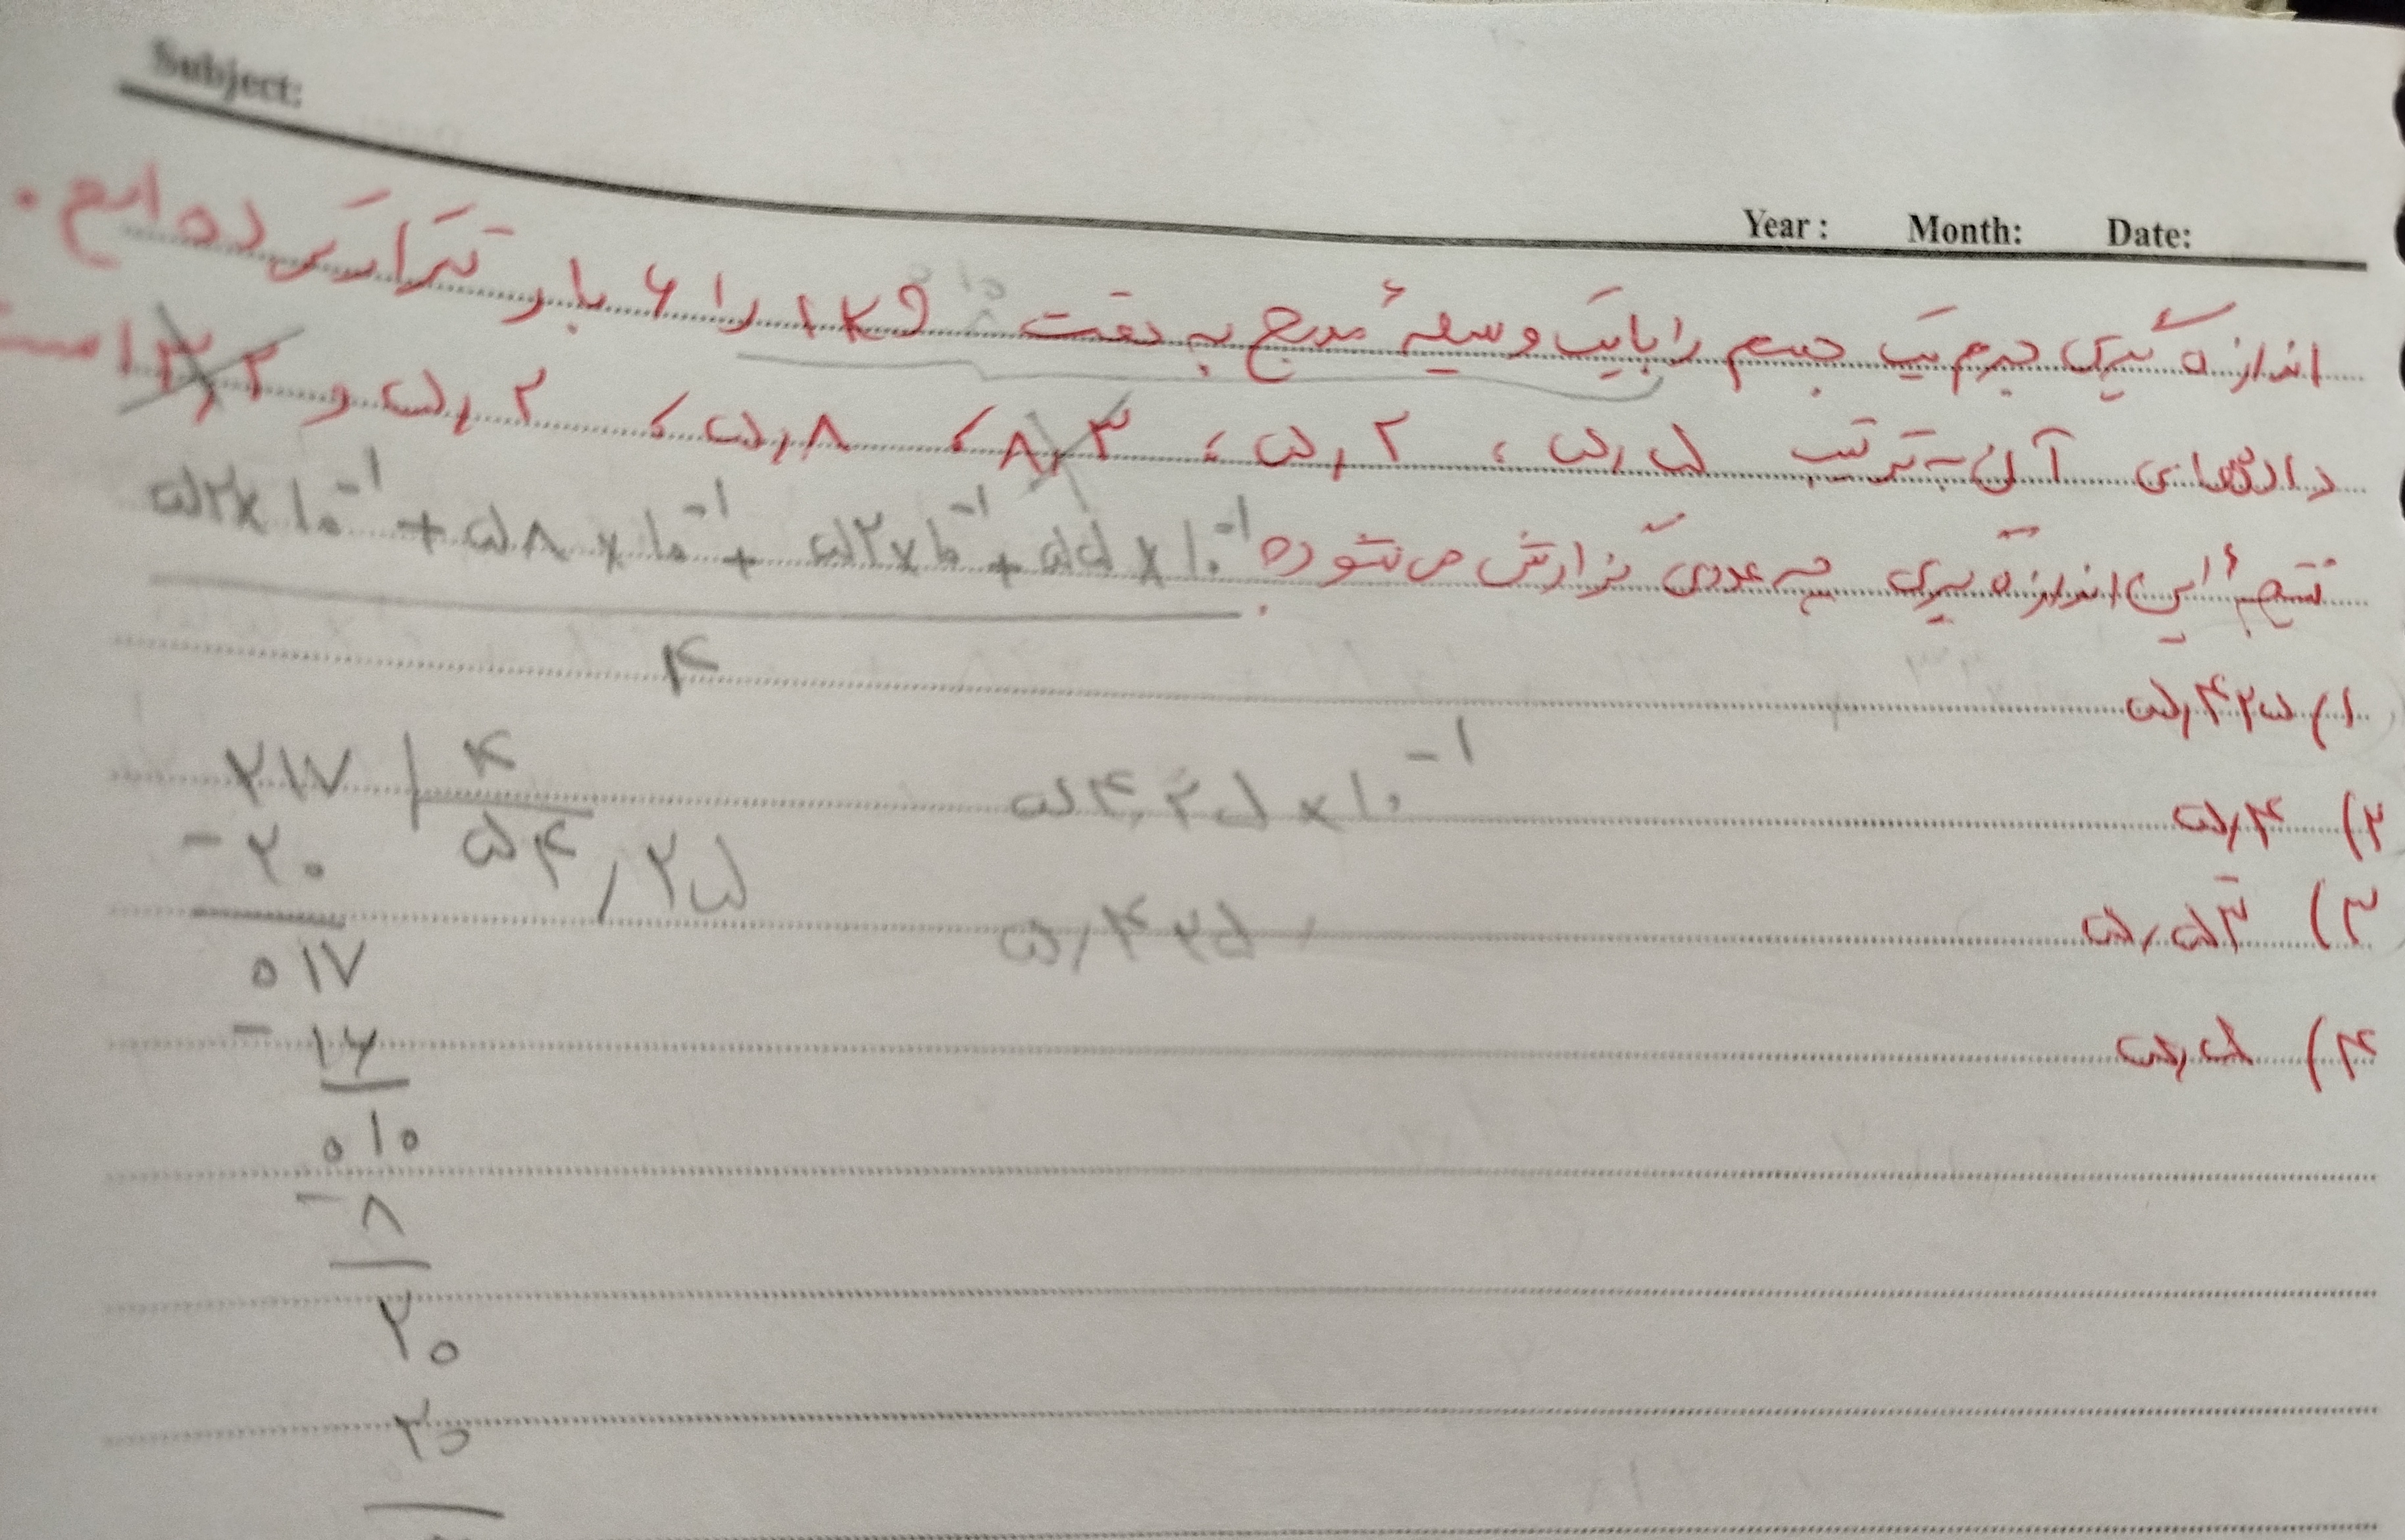 Subject:
Year : Month: Date:
اندازه گیری جرم یک جسم را با یک وسیلهٔ مدرج به دقت ۱kg را ۶ بار تکرار کرده ایم.
داده‌های آن به ترتیب ۵٫۵ ، ۵٫۲ ، ۸٫۳ ، ۵٫۸ ، ۵٫۲ و ۳٫۲ است
نتیجهٔ این اندازه گیری چه عددی گزارش می‌شود؟
۵۲×۱۰⁻¹ + ۵۸×۱۰⁻¹ + ۵۲×۱۰⁻¹ + ۵۵×۱۰⁻¹
۴
۱) ۵٫۴۲۵
۲) ۵٫۴
۳) ۵٫۵۳
۴) ۵٫۵
۲۱۷ | ۴
۵۴٫۲۵
- ۲۰
۰۱۷
- ۱۶
۰۱۰
- ۸
۲۰
۲۰
۵۴٫۲۵×۱۰⁻¹
۵٫۴۲۵